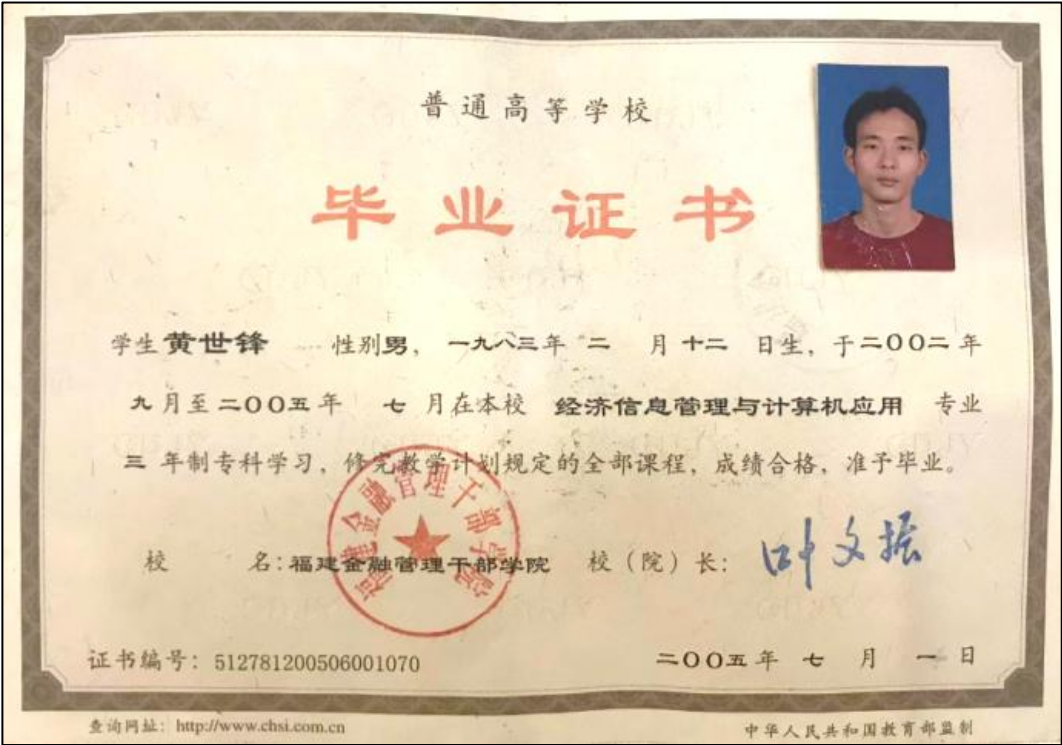 普通高等学校
毕业证书
学生黄世锋 性别男，一九八三年 二 月十二 日生，于二〇〇二年
九月至二〇〇五年 七 月在本校 经济信息管理与计算机应用 专业
三 年制专科学习，修完教学计划规定的全部课程，成绩合格，准予毕业。
福建金融管理干部学院
校 名：福建金融管理干部学院 校（院）长：叶文振
证书编号：512781200506001070 二〇〇五年 七 月 一 日
查询网址：http://www.chsi.com.cn 中华人民共和国教育部监制